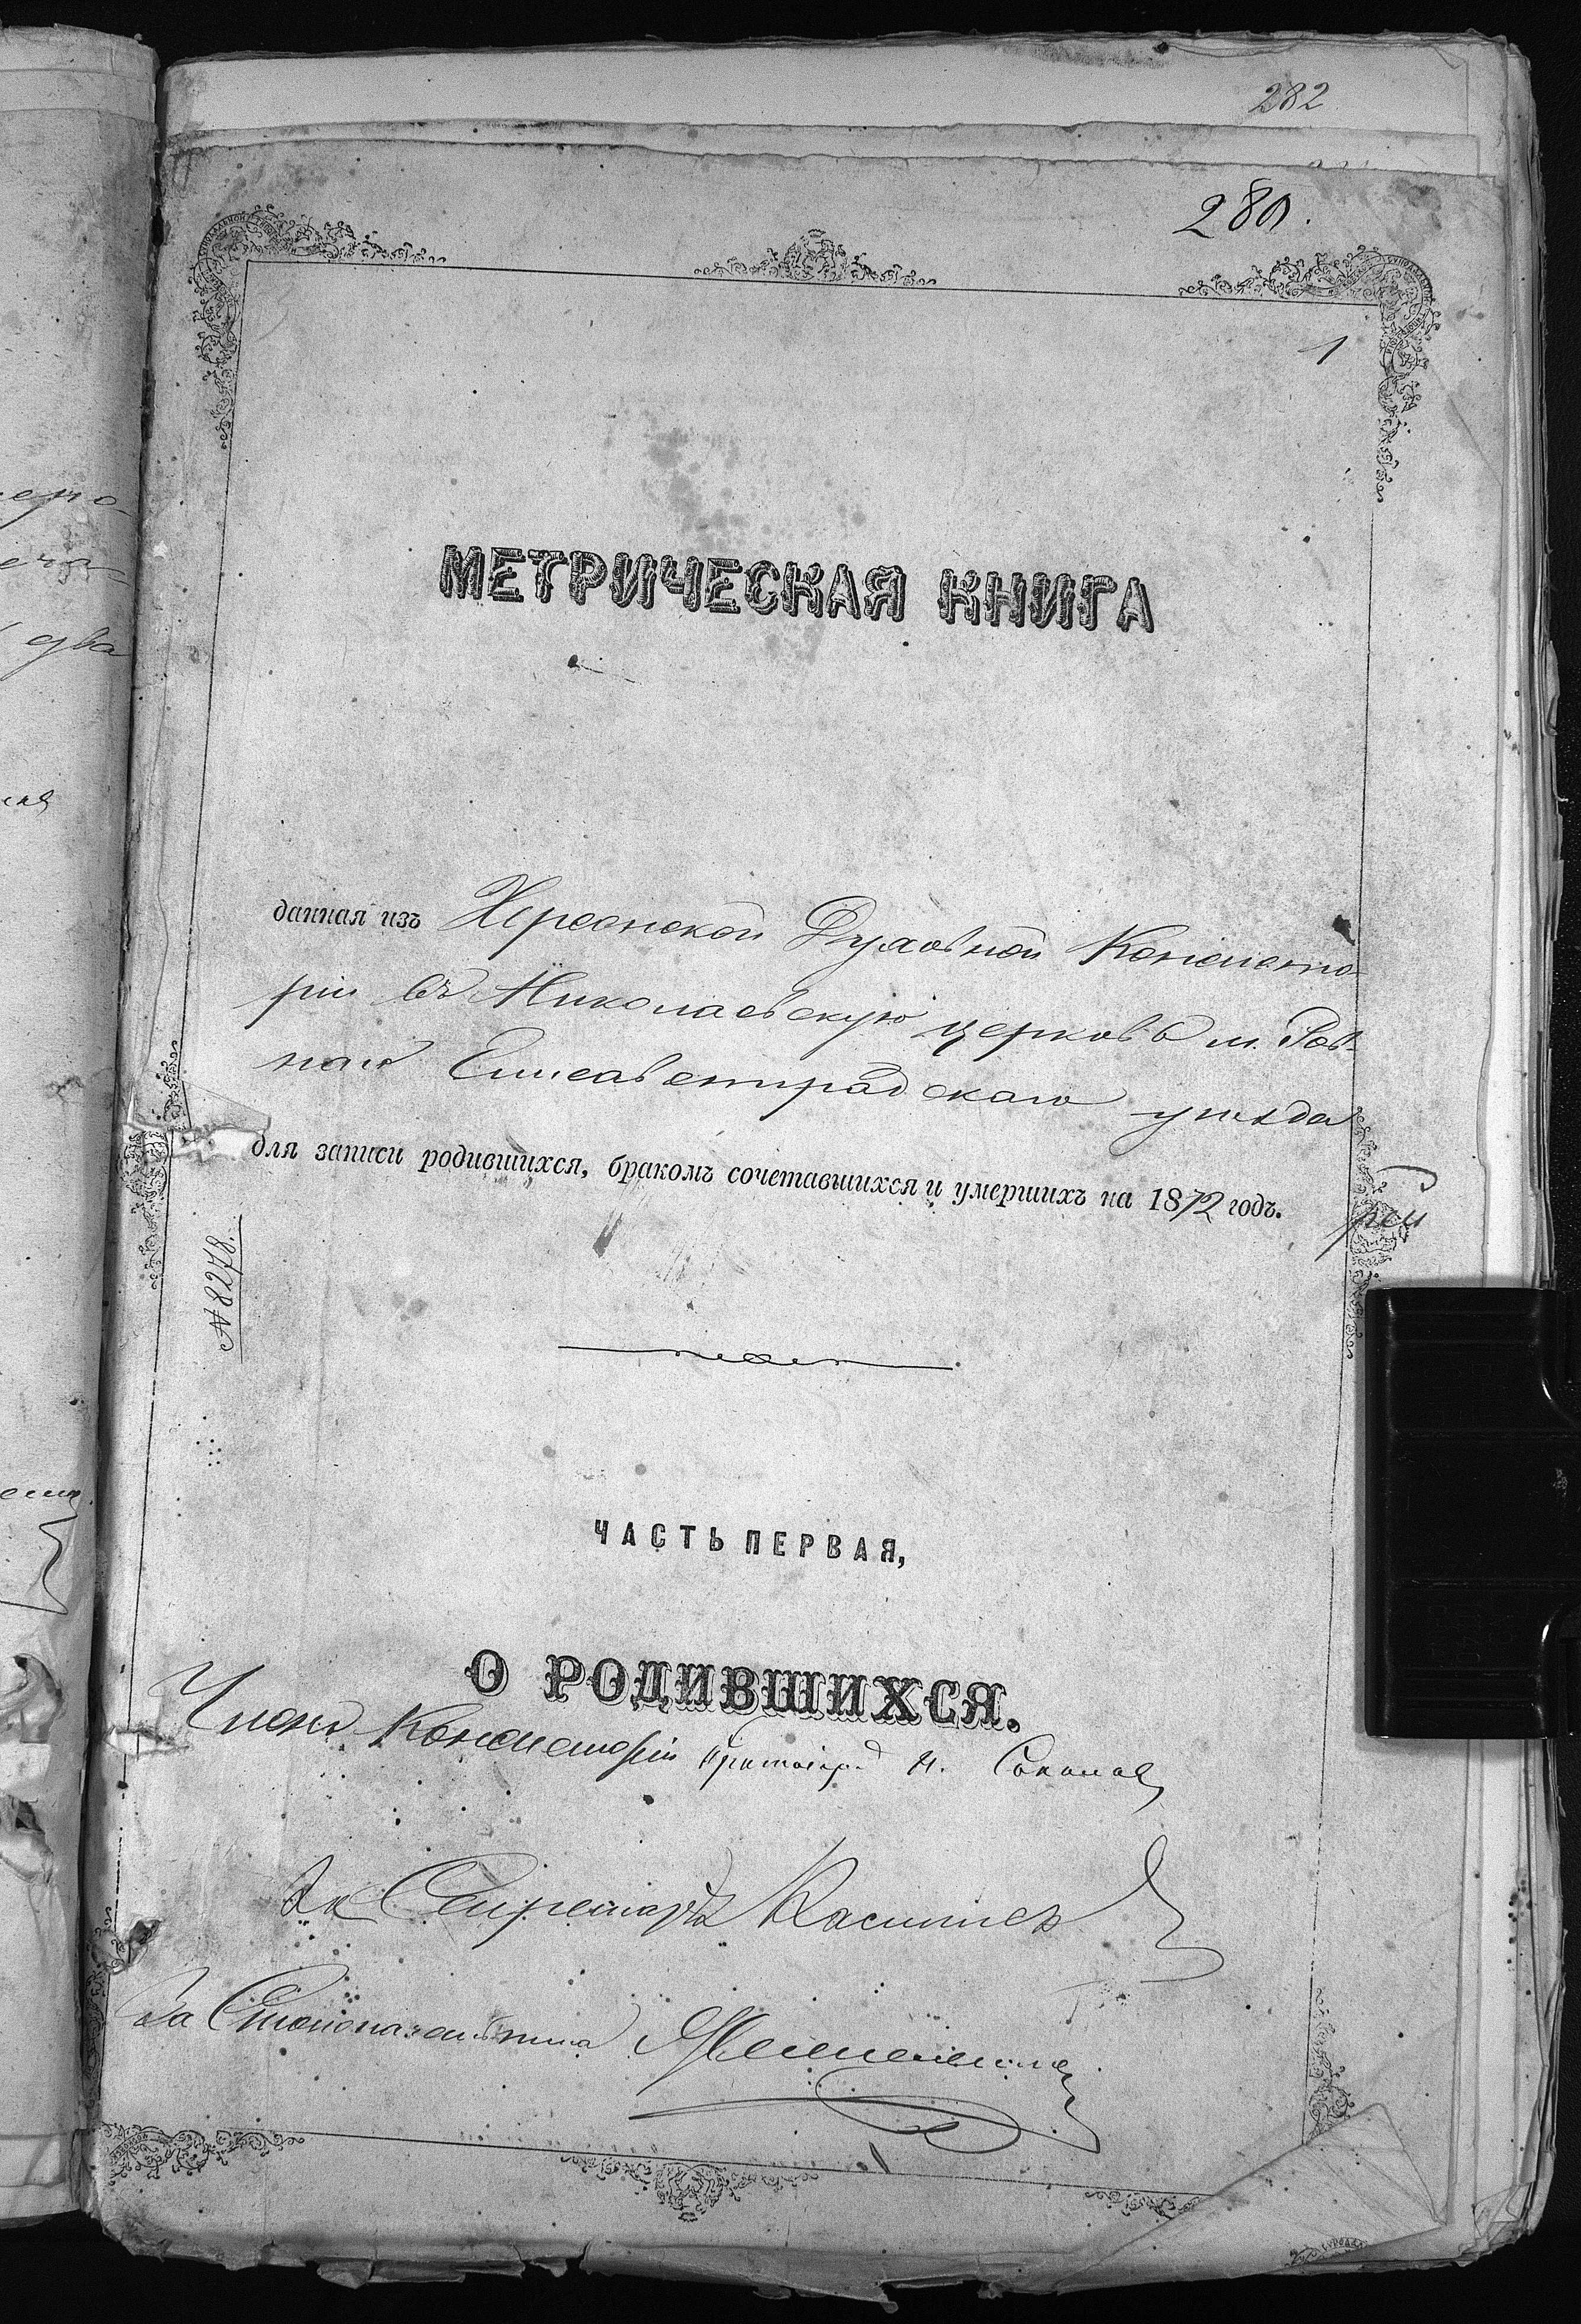 282
280.
1
МЕТРИЧЕСКАЯ КНИГА
данная изъ Херсонской Духовной Консисто-
ріи въ Николаевскую церковь м. Ров-
наго Елисаветградскаго уѣзда
для записи родившихся, бракомъ сочетавшихся и умершихъ на 1872 годъ.
№ 8278.
ЧАСТЬ ПЕРВАЯ,
О РОДИВШИХСЯ.
Членъ Консисторіи Протоіер. Н. Соколов
За Секретаря
За Столоначальника
два